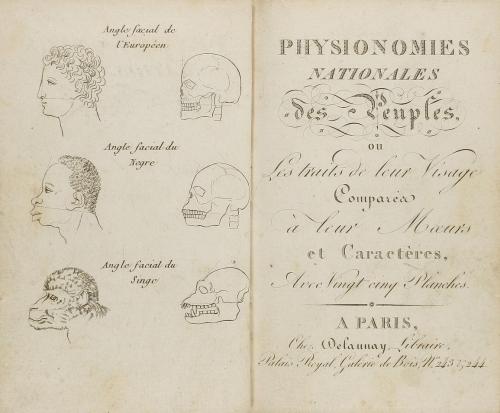 Angle facial de
l'Européen
Angle facial du
Negre
Angle facial du
Singe
PHYSIONOMIES
NATIONALES
des Peuples,
ou
Les traits de leur Visage
Comparés
à leur Mœurs
et Caractères,
Avec Vingt cinq Planches.
A PARIS,
Chez Delaunay, Libraire,
Palais Royal, Galerie de Bois, N. 243 & 244